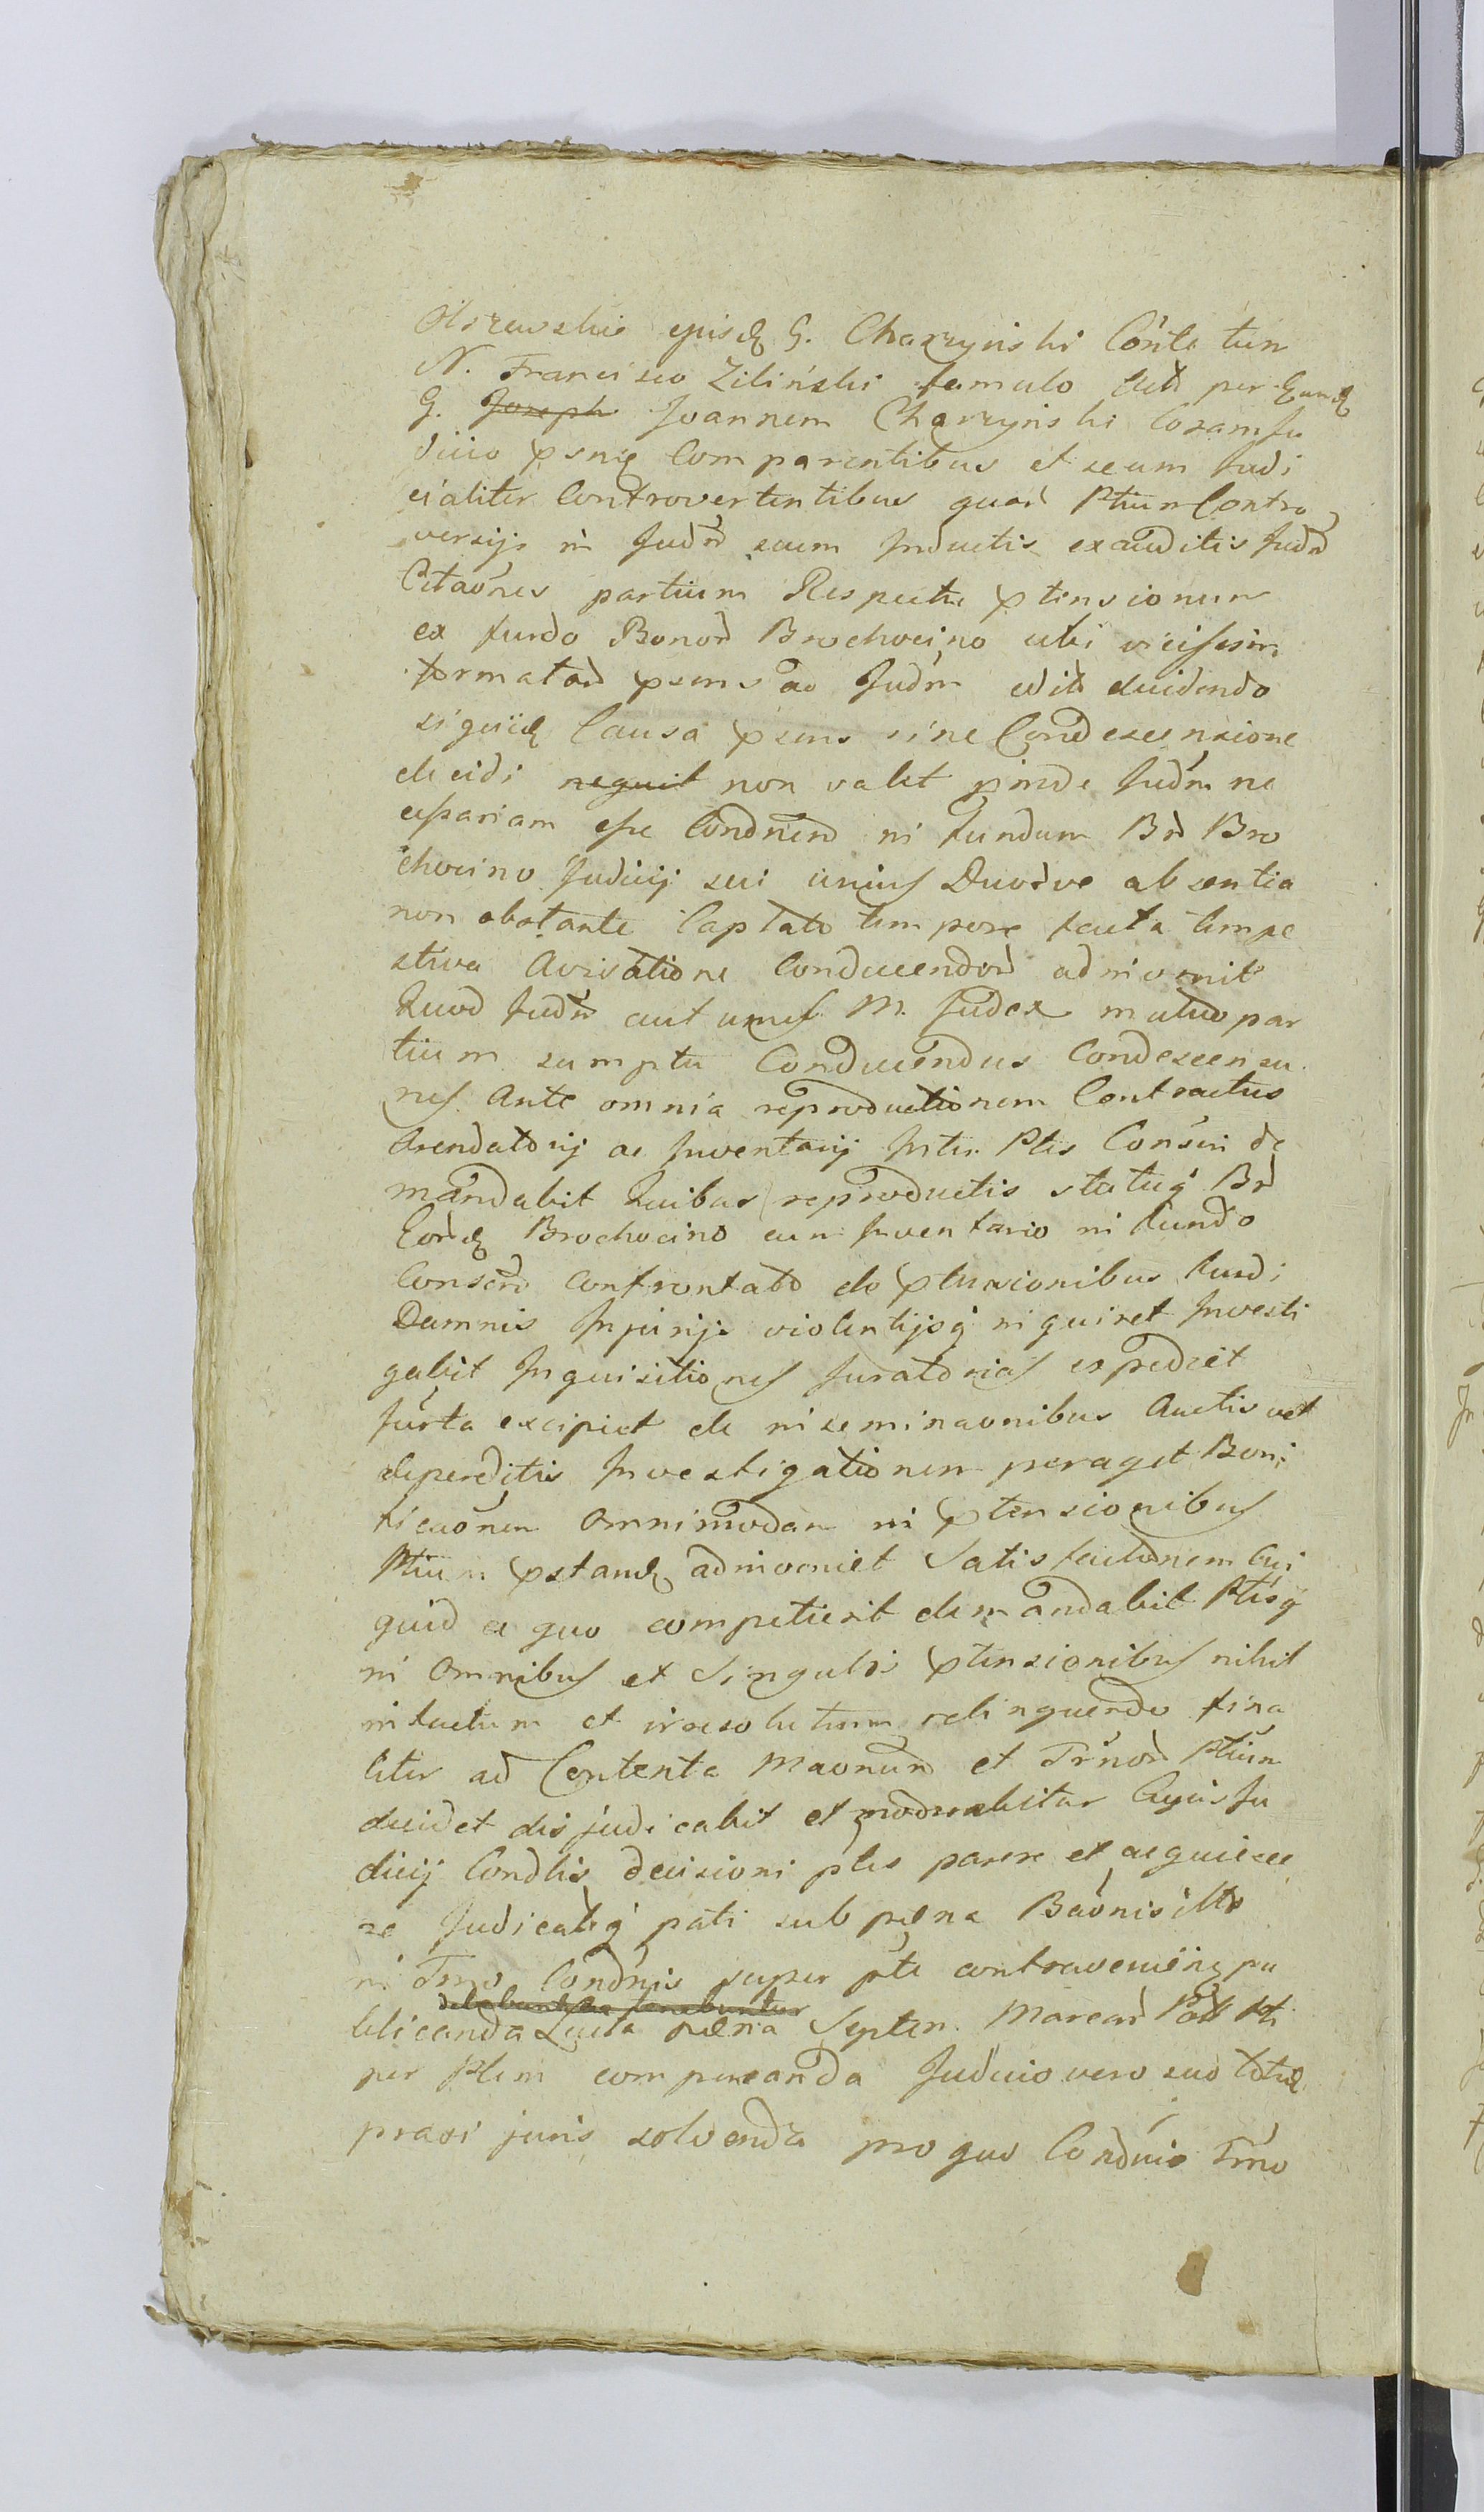 Olszewskie ejusdq G. Charzynski Cónte tum
N. Francisco Ziliński famulo Citt per Eundq
G. Joseph Joannem Charzynski Coram Ju
dicio psnte Comparentibus et secum Judi
cialiter Controvertentibus quar Ptium Contro
versijs in Judm suum Inductis exauditis Judm
Citaões partium Respectu ptensionum
ex fundo Bonor Brochocino ubi vicissim
formatar psens ad Judm edit decidendo
siquidq Causa psens sine Condescensione
decidi nequit non valet pinde Judm ne
cessariam esse Condnem in fundum Br Bro
chocino Judicij sui unius Duorve absentia
non obstante Captato tempore facta tempe
stiva Avisatione Conducendor adinvenit
Quod Judm aut unus M. Judex mutuo par
tium sumptu Conducendus Condescensu
rus Ante omnia reproductionem Contractus
Arendatorij ac Inventarij Inter Ptes Conscri de
mandabit Quibus reproductis statuq Br
Eordq Brochocino cum Inventario in fundo
Conscrib Confrontato de ptensionibus fundi
Damnis Injurijs violentijsq inquiret Investi
gabit Inquisitiones Juratorias expediet
Jurta excipiet de inseminaonibus Auctis vel
deperditis Investigationem peraget Boni
ficaõnem Omnimodam in ptensionibus
Ptium pstandq adinveniet Satisfactionem Cui
quid a quo competierit demandabit Ptesq
in Omnibus et Singulis ptensionibus nihil
infactum et irresolutum relinquendo fina
liter ad Contenta Maonum et Trnor Ptium
decidet disjudicabit et moderabitur Cujus Ju
dicij Condlis decisioni ptes parere et acquiesce
re Judicatq pati sub paena Baonis illo
in Tmo Condnis super pte contraveniente pu
debebunt sea tenebuntur
blicanda Lucta paena Septem Marcar Pol Pti
per Ptem compensanda Judicio vero suo totidq
praxi juris solvenda pro quo Condnis Tmo